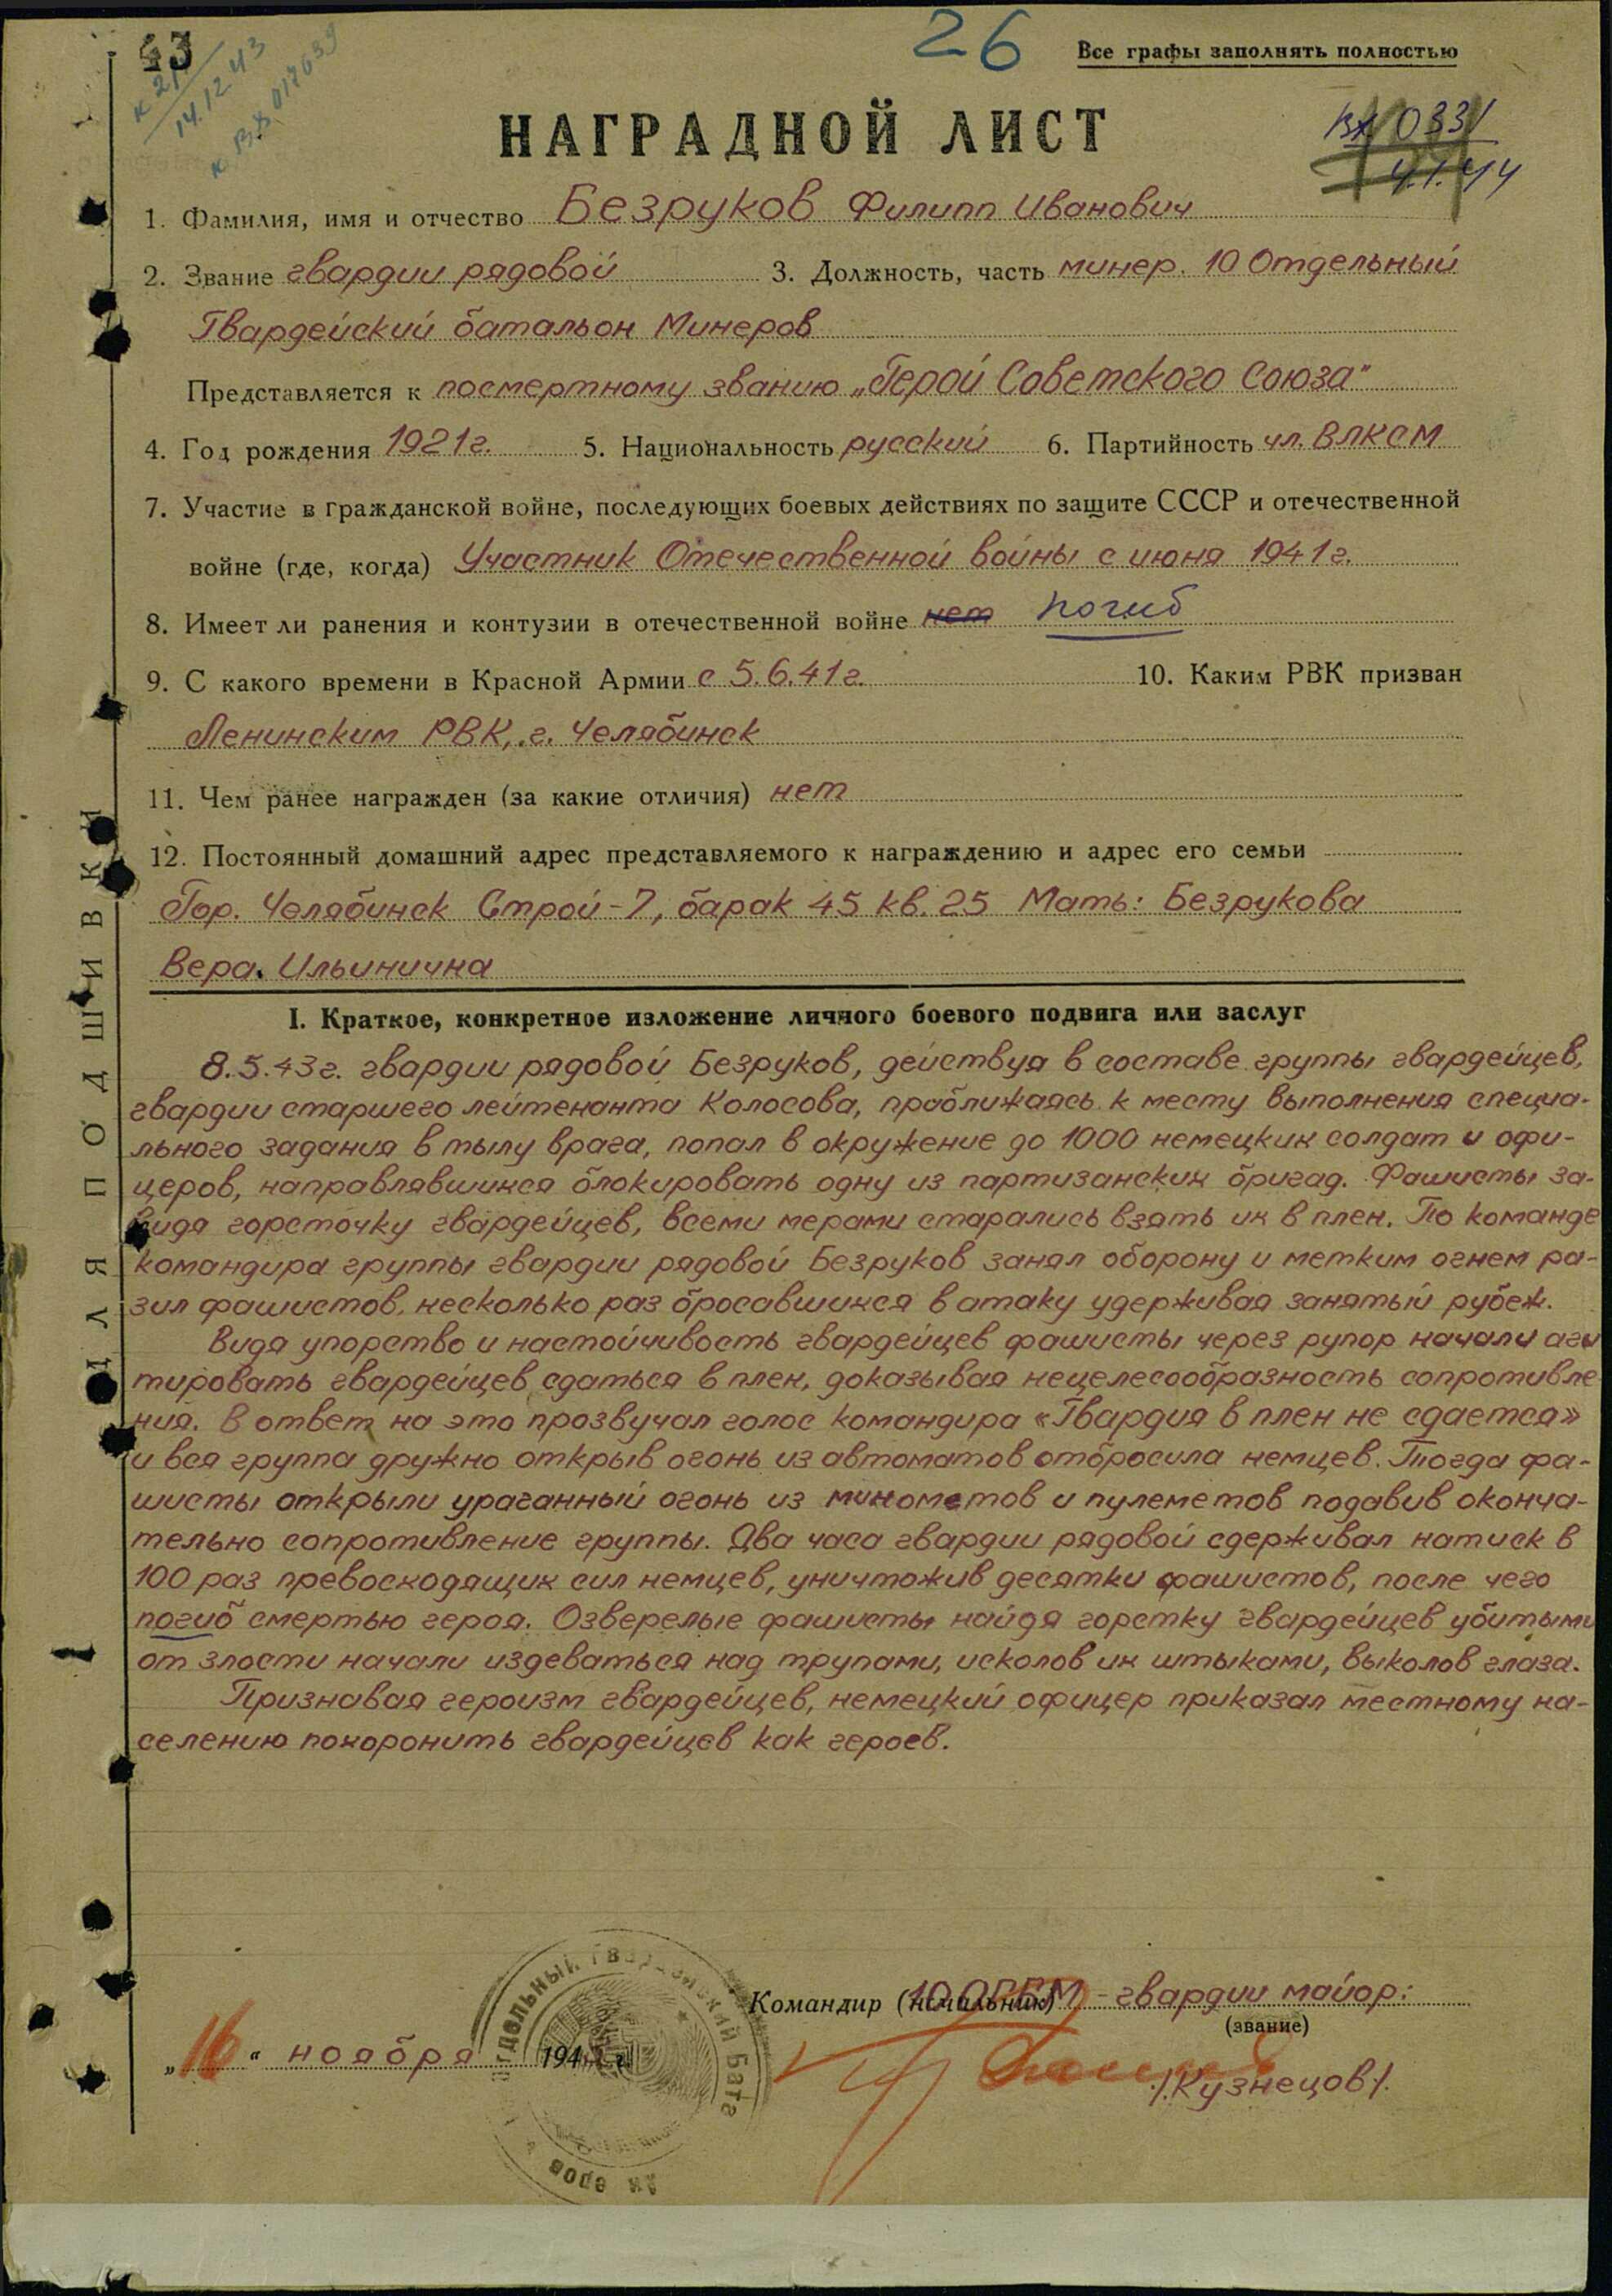 43
26
Все графы заполнять полностью
к 21
14.12.43
к В.В. 017639
Вх 0331
4.1.44
НАГРАДНОЙ ЛИСТ
1. Фамилия, имя и отчество Безруков Филипп Иванович
2. Звание гвардии рядовой 3. Должность, часть минер. 10 Отдельный
Гвардейский батальон Минеров
Представляется к посмертному званию „Герой Советского Союза"
4. Год рождения 1921г. 5. Национальность русский 6. Партийность чл. ВЛКСМ
7. Участие в гражданской войне, последующих боевых действиях по защите СССР и отечественной
войне (где, когда) Участник Отечественной войны с июня 1941г.
8. Имеет ли ранения и контузии в отечественной войне нет погиб
9. С какого времени в Красной Армии с 5.6.41г. 10. Каким РВК призван
Ленинским РВК, г. Челябинск
11. Чем ранее награжден (за какие отличия) нет
12. Постоянный домашний адрес представляемого к награждению и адрес его семьи
Гор. Челябинск Строй-7, барак 45 кв. 25 Мать: Безрукова
Вера. Ильинична
ДЛЯ ПОДШИВКИ
I. Краткое, конкретное изложение личного боевого подвига или заслуг
8.5.43г. гвардии рядовой Безруков, действуя в составе группы гвардейцев,
гвардии старшего лейтенанта Колосова, приближаясь к месту выполнения специа-
льного задания в тылу врага, попал в окружение до 1000 немецких солдат и офи-
церов, направлявшихся блокировать одну из партизанских бригад. Фашисты за-
видя горсточку гвардейцев, всеми мерами старались взять их в плен. По команде
командира группы гвардии рядовой Безруков занял оборону и метким огнем ра-
зил фашистов, несколько раз бросавшихся в атаку удерживая занятый рубеж.
Видя упорство и настойчивость гвардейцев фашисты через рупор начали аги
тировать гвардейцев сдаться в плен, доказывая нецелесообразность сопротивле
ния. В ответ на это прозвучал голос командира «Гвардия в плен не сдается»
и вся группа дружно открыв огонь из автоматов отбросила немцев. Тогда фа-
шисты открыли ураганный огонь из минометов и пулеметов подавив оконча-
тельно сопротивление группы. Два часа гвардии рядовой сдерживал натиск в
100 раз превосходящих сил немцев, уничтожив десятки фашистов, после чего
погиб смертью героя. Озверелые фашисты найдя горстку гвардейцев убитыми
от злости начали издеваться над трупами, исколов их штыками, выколов глаза.
Признавая героизм гвардейцев, немецкий офицер приказал местному на-
селению похоронить гвардейцев как героев.
Командир (начальник) 10 ОГБМ - гвардии майор:
(звание)
„16" ноября 194 г.
/.Кузнецов/.
ОТДЕЛЬНЫЙ ГВАРДЕЙСКИЙ БАТА